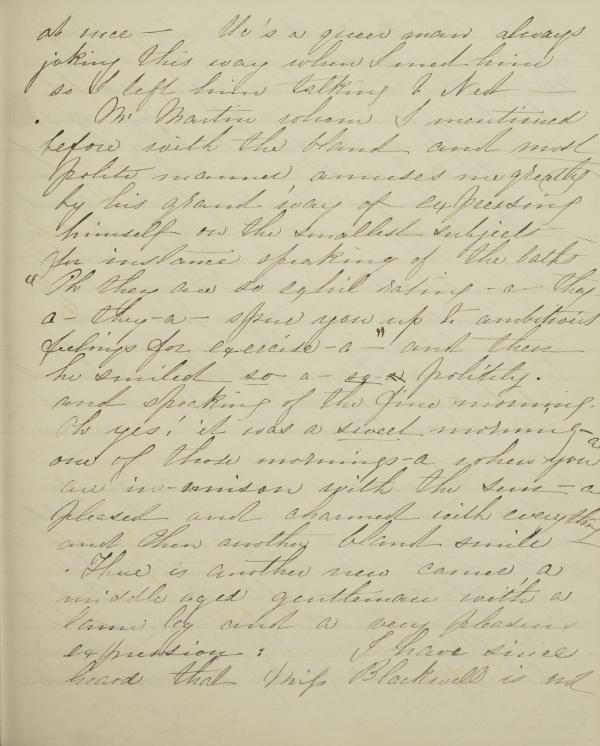 at once — He's a queer man always
joking this way when I meet him
so I left him talking to Ned —
Mr Martin whom I mentioned
before with the bland and most
polite manner amuses me greatly
by his grand way of expressing
himself on the smallest subject
for instance speaking of the baths
"Oh they are so exhil arating - a - they
a - they - a - spur you up to ambitious
feelings for exercise - a - " and then
he smiled so a - so a politely.
and speaking of the fine morning.
Oh yes! it was a sweet morning - a
one of those mornings - a when you
are in-unison with the sun - a
pleased and charmed with everything
and then another bland smile
. There is another new comer, a
middle aged gentleman with a
lame leg and a very pleasing
expression : I have since
heard that Miss Blackwell is not